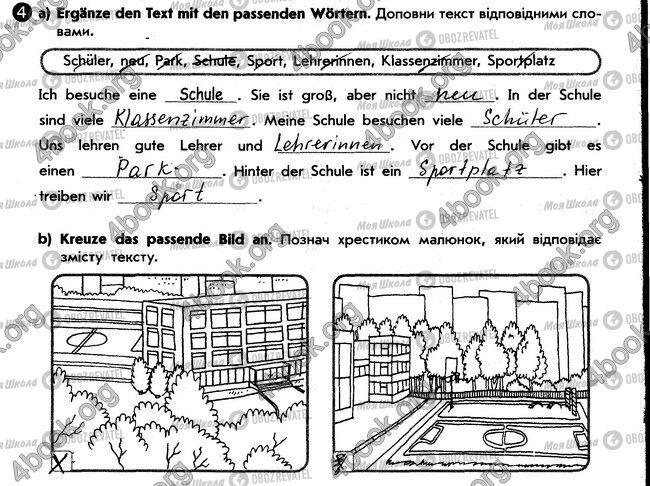 4 a) Ergänze den Text mit den passenden Wörtern. Доповни текст відповідними сло-
вами.
Schüler, neu, Park, Schule, Sport, Lehrerinnen, Klassenzimmer, Sportplatz
Ich besuche eine Schule. Sie ist groß, aber nicht neu. In der Schule
sind viele Klassenzimmer. Meine Schule besuchen viele Schüler.
Uns lehren gute Lehrer und Lehrerinnen. Vor der Schule gibt es
einen Park. Hinter der Schule ist ein Sportplatz. Hier
treiben wir Sport.
b) Kreuze das passende Bild an. Познач хрестиком малюнок, який відповідає
змісту тексту.
X
4book.org
Моя Школа
OBOZREVATEL